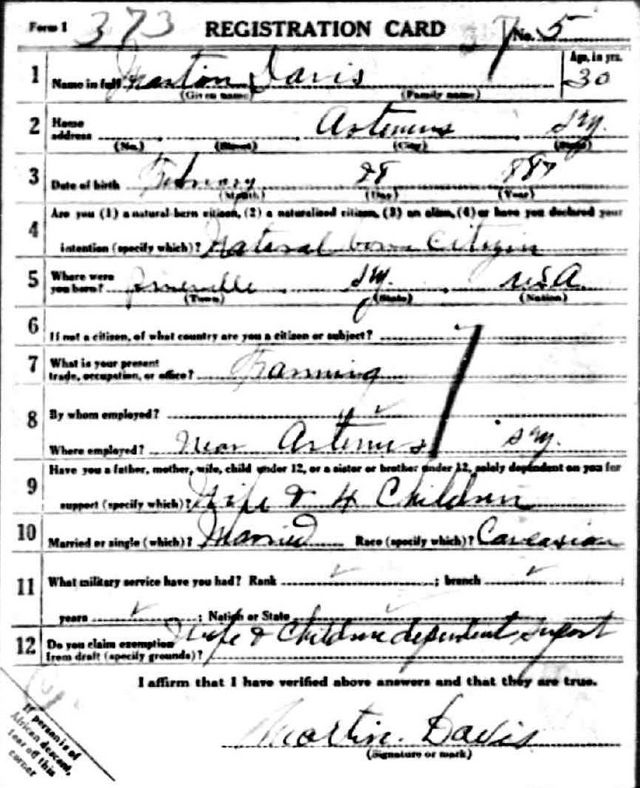 Form 1 373 REGISTRATION CARD No. 5
1 Name in full Martin Davis Age, in yrs. 30
(Given name) (Family name)
2 Home address Artemus Ky.
(No.) (Street) (City) (State)
3 Date of birth February 28 1887
(Month) (Day) (Year)
4 Are you (1) a natural-born citizen, (2) a naturalized citizen, (3) an alien, (4) or have you declared your
intention (specify which)? Natural born Citizen
5 Where were you born? Ky. U.S.A.
(Town) (State) (Nation)
6 If not a citizen, of what country are you a citizen or subject?
7 What is your present trade, occupation, or office? Farming
8 By whom employed?
Where employed? Near Artemus Ky.
9 Have you a father, mother, wife, child under 12, or a sister or brother under 12, solely dependent on you for
support (specify which)? Wife & 4 Children
10 Married or single (which)? Married Race (specify which)? Caucasian
11 What military service have you had? Rank ; branch
years ; Nation or State
12 Do you claim exemption from draft (specify grounds)? Wife & Children dependent suport
I affirm that I have verified above answers and that they are true.
Martin Davis
(Signature or mark)
If person is of
African descent,
tear off this
corner